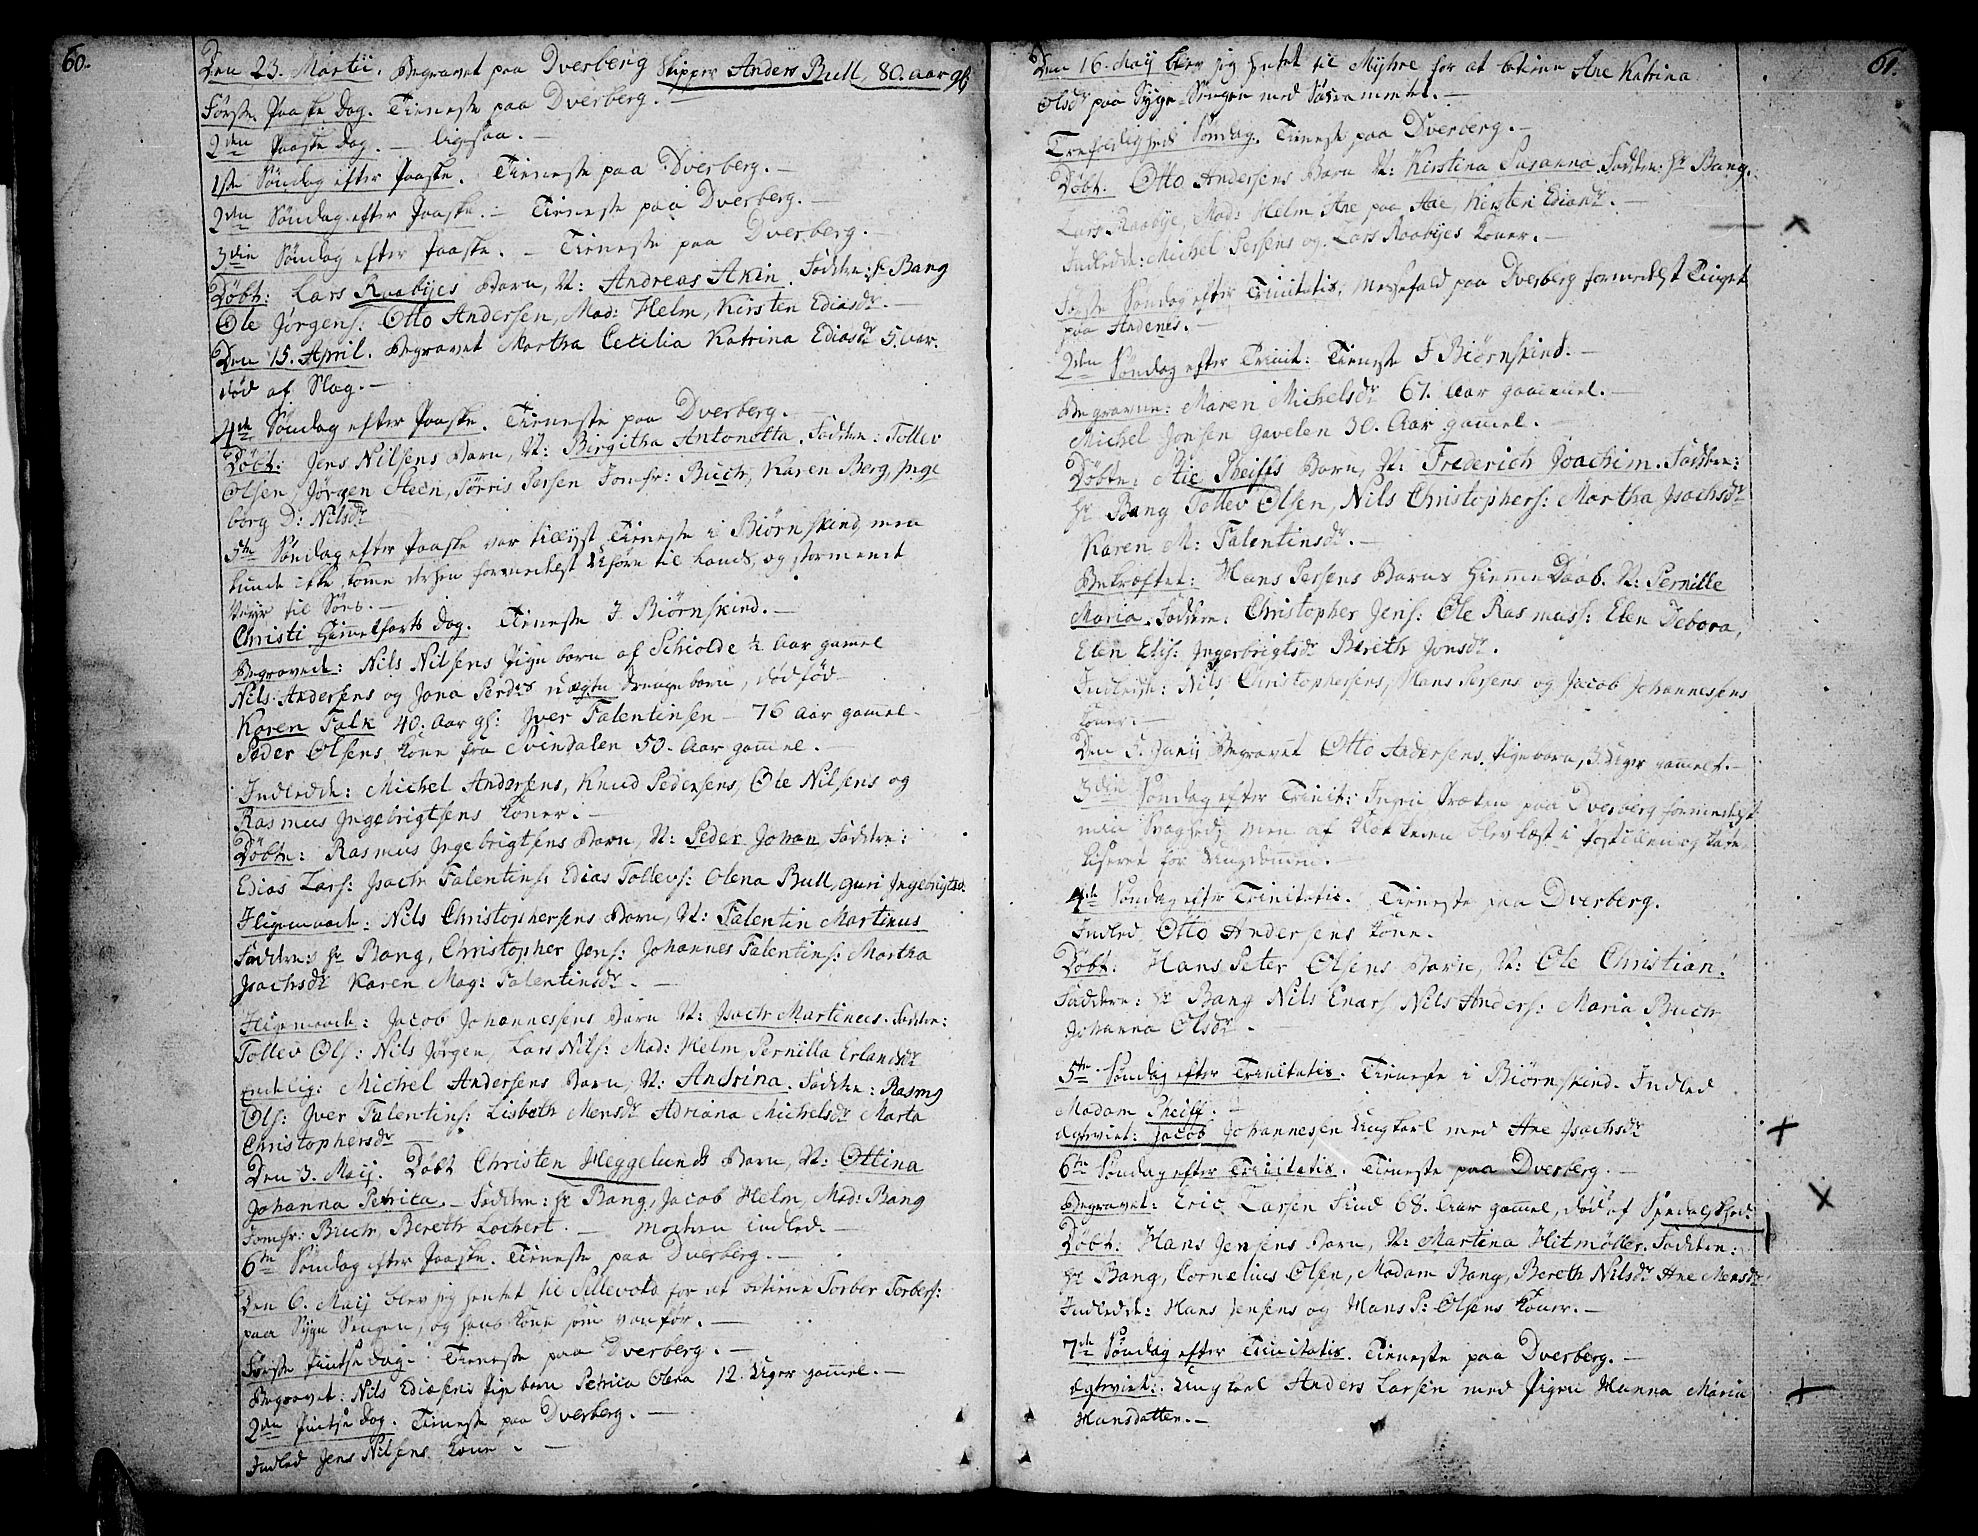 60.
Den 23. Martii. Begravet paa Dverberg Skipper Anders Bull, 80. aar gl:
Første Paaske Dag. Tieneste paa Dverberg. —
2den Paaske Dag. — ligesaa. —
1ste Søndag efter Paaske. Tieneste paa Dverberg. —
2den Søndag efter Paaske. — Tieneste paa Dverberg. —
3die Søndag efter Paaske. — Tieneste paa Dverberg. —
Døbt: Lars Raabyes Barn, N: Andreas Akin. Faddere: Hr Bang
Ole Jørgens: Otto Andersen, Mad: Helm, Kirsten Ediasdr. —
Den 15. April. Begravet Martha Cecilia Katrina Ediasdr 5. aar.
død af Slag. —
4de Søndag efter Paaske. Tieneste paa Dverberg. —
Døbt: Jens Nilsens Barn, N: Birgitha Antonetta. Faddere: Tollev
Olsen, Jørgen Steen, Tørris Persen Jomfr: Buch, Karen Berg, Inge
borg D: Nilsdr
5te Søndag efter Paaske var tillyst Tieneste i Biørnskind, men
kunde ikke kome derhen formedelst Uføre til Lands, og stormende
Veyr til Søes. —
Christi Himmelfarts Dag. Tieneste I Biørnskind. —
Begravede: Nils Nilsens Pige barn af Schiolde ½ Aar gamel
Nils Andersens og Jona Persdrs uægte Drenge barn, dødfød
Karen Falk 40. Aar gl: Iver Falentinsen — 76 Aar gamel.
Peder Olsens Kone fra Svindalen 50. Aar gammel. —
Indledde: Michel Andersens, Knud Pedersens, Ole Nilsens og
Rasmus Ingebrigtsens Koner. —
Døbte: Rasmus Ingebrigtsens Barn, N: Peder Johan Faddere:
Edias Lars: Isach Falentins: Edias Tollevs: Olena Bull, Guri Ingebrigtsd:
Iligemaade: Nils Christophersens Barn, N: Falentin Martinus
Faddere: Hr Bang, Christopher Jens: Johannes Falentins: Martha
Isachsdr Karen Mag: Falentinsdr. —
Iligemaade: Jacob Johannessens Barn N: Isach Martinus. Faddere:
Tollev Ols: Nils Jørgen, Lars Nils: Mad: Helm, Pernilla Erlandsdr
Endelig: Michel Andersens Barn, N: Andrina. Faddere: Rasmus
Ols: Iver Falentins: Lisbeth Mensdr Adriana Michelsdr Marta
Christophersdr —
Den 3. Maij. Døbt Christen Heggelunds Barn, N: Ottina
Johanna Petrica. — Faddere: Hr Bang, Jacob Helm, Mad: Bang
Jomfr: Buch, Bereth Lochert. — Modren indled. —
6te Søndag efter Paaske. Tieneste paa Dverberg. —
Den 6. Maij blev jeg hentet til Sellevold for at betiene Torber Torbers:
paa Syge Sengen, og hans Kone som vanfør. —
Første Pintse dag. Tieneste paa Dverberg. —
Begravet: Nils Ediasens Pige barn Petricia Olena 12. Uger gammel. —
2den Pintse Dag. Tieneste paa Dverberg. —
Indled Jens Nilsens Kone. —
61.
Den 16. Maij blev jeg hentet til Myhre for at betiene Ane Katrina
Olsdr paa Syge Sengen med Sacramentet. —
Trefoldigheds Søndag. Tieneste paa Dverberg. —
Døbt. Otto Andersens Barn N: Kirstina Susanna. Faddere: Hr Bang.
Lars Raabye, Mad: Helm Ane paa Aae, Kirsten Ediasdr. —
Indledde: Michel Persens og Lars Raabyes Koner. —
Første Søndag efter Trinitatis, Messefald paa Dverberg formedelst Tinget
paa Andenes. —
2den Søndag efter Trinit: Tieneste I Biørnskind. —
Begravne: Maren Michelsdr 67. Aar gammel. —
Michel Jonsen Gavelen 30. Aar gamel. —
Døbte: Pheiffs Barn, N: Frederich Joachim. Faddere:
Hr Bang Tollev Olsen, Nils Christophers: Martha Isachsdr
Karen M: Falentinsdr. —
Bekræftet: Hans Persens Barns Hiemme Daab. N: Pernille
Maria. Faddere: Christopher Jens: Ole Rasmuss: Elen Debora,
Elen Elis: Ingerbrigtsdr Bereth Jonsdr.
Indledde: Nils Christophersens, Hans Persens og Jacob Johannesens
Koner. —
Den 5. Junij Begravet Otto Andersens Pige barn, 3. Uger gamelt. —
3die Søndag efter Trinit: Ingen Præken paa Dverberg formedelst
min Svaghed, men af Klokkeren blev læst i Postillen og Kate
kiseret for Ungdommen. —
4de Søndag efter Trinitatis. Tieneste paa Dverberg.
Indled Otto Andersens Kone.
Døbt: Hans Peter Olsens Barn, N: Ole Christian.
Faddere: Hr Bang Nils Enars: Nils Anders: Maria Buch
Johanna Olsdr. —
5te Søndag efter Trinitatis. Tieneste i Biørnskind. Indled
Madam Pheiff. —
Egteviet: Jacob Johannesen Ungkarl med Ane Isachsdr
6te Søndag efter Trinitatis. Tieneste paa Dverberg. —
Begravet: Eric Larsen Find 68. Aar gammel, død af Spedalskhed.
Døbt: Hans Jensens Barn, N: Martina Hitmøller. Faddere:
Hr Bang, Cornelius Olsen, Madam Bang, Bereth Nilsdr Ane Mensdr
Indledde: Hans Jensens og Hans P: Olsens Koner. —
7de Søndag efter Trinitatis. Tieneste paa Dverberg. —
Egteviet: Ungkarl Anders Larsen med Pigen Hanna Maria
Hansdatter. —